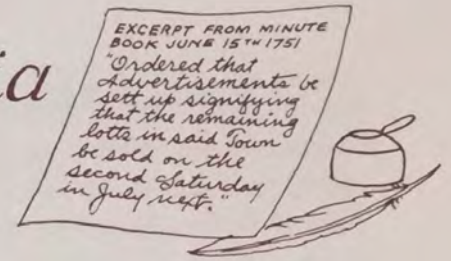 ia
EXCERPT FROM MINUTE
BOOK JUNE 15TH 1751
"Ordered that
Advertisements be
sett up signifying
that the remaining
lotts in said Town
be sold on the
second Saturday
in July next."